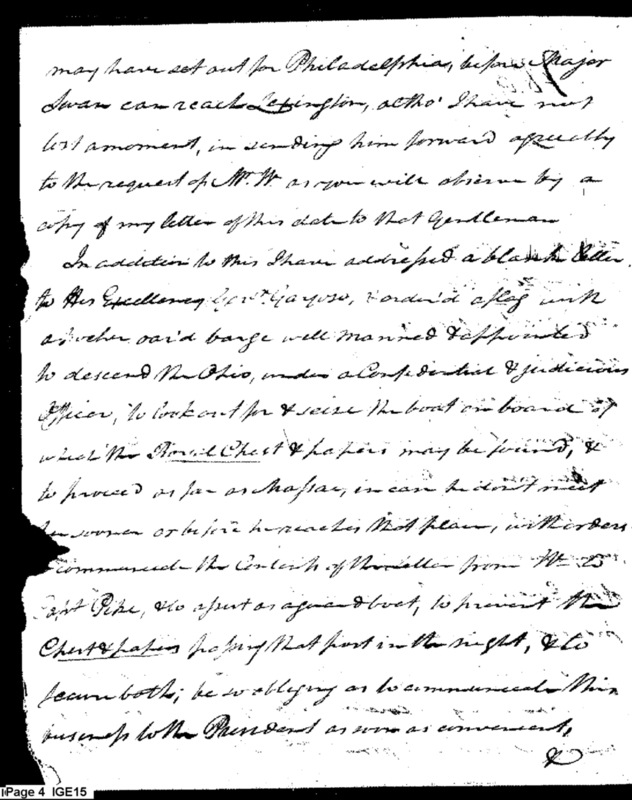 may have set out for Philadelphia, before Major
Swan can reach Lexington, altho' I have not
lost a moment, in sending him forward agreeably
to the request of Mr. W. as you will observe by a
copy of my letter of this date to that Gentleman
In addition to this I have addressed a blank letter
to His Excellency Govr. Gayoso, & order'd a flag with
a oar'd barge well manned & appointed
to descend the Ohio, under a Confidential & judicious
Officer, to look out for & seize the boat on board of
which the Royal Chest & papers may be found, &
to proceed as far as Massac, in case he don't meet
her sooner or before he reaches that place, with orders
communicate the Contents of the letter from W. to
Capt. Pike, & to assist as a guard boat, to prevent the
Chest & papers passing that post in the night, & to
secure both; be so obliging as to communicate this
business to the President as soon as convenient,
&
iPage 4 IGE15